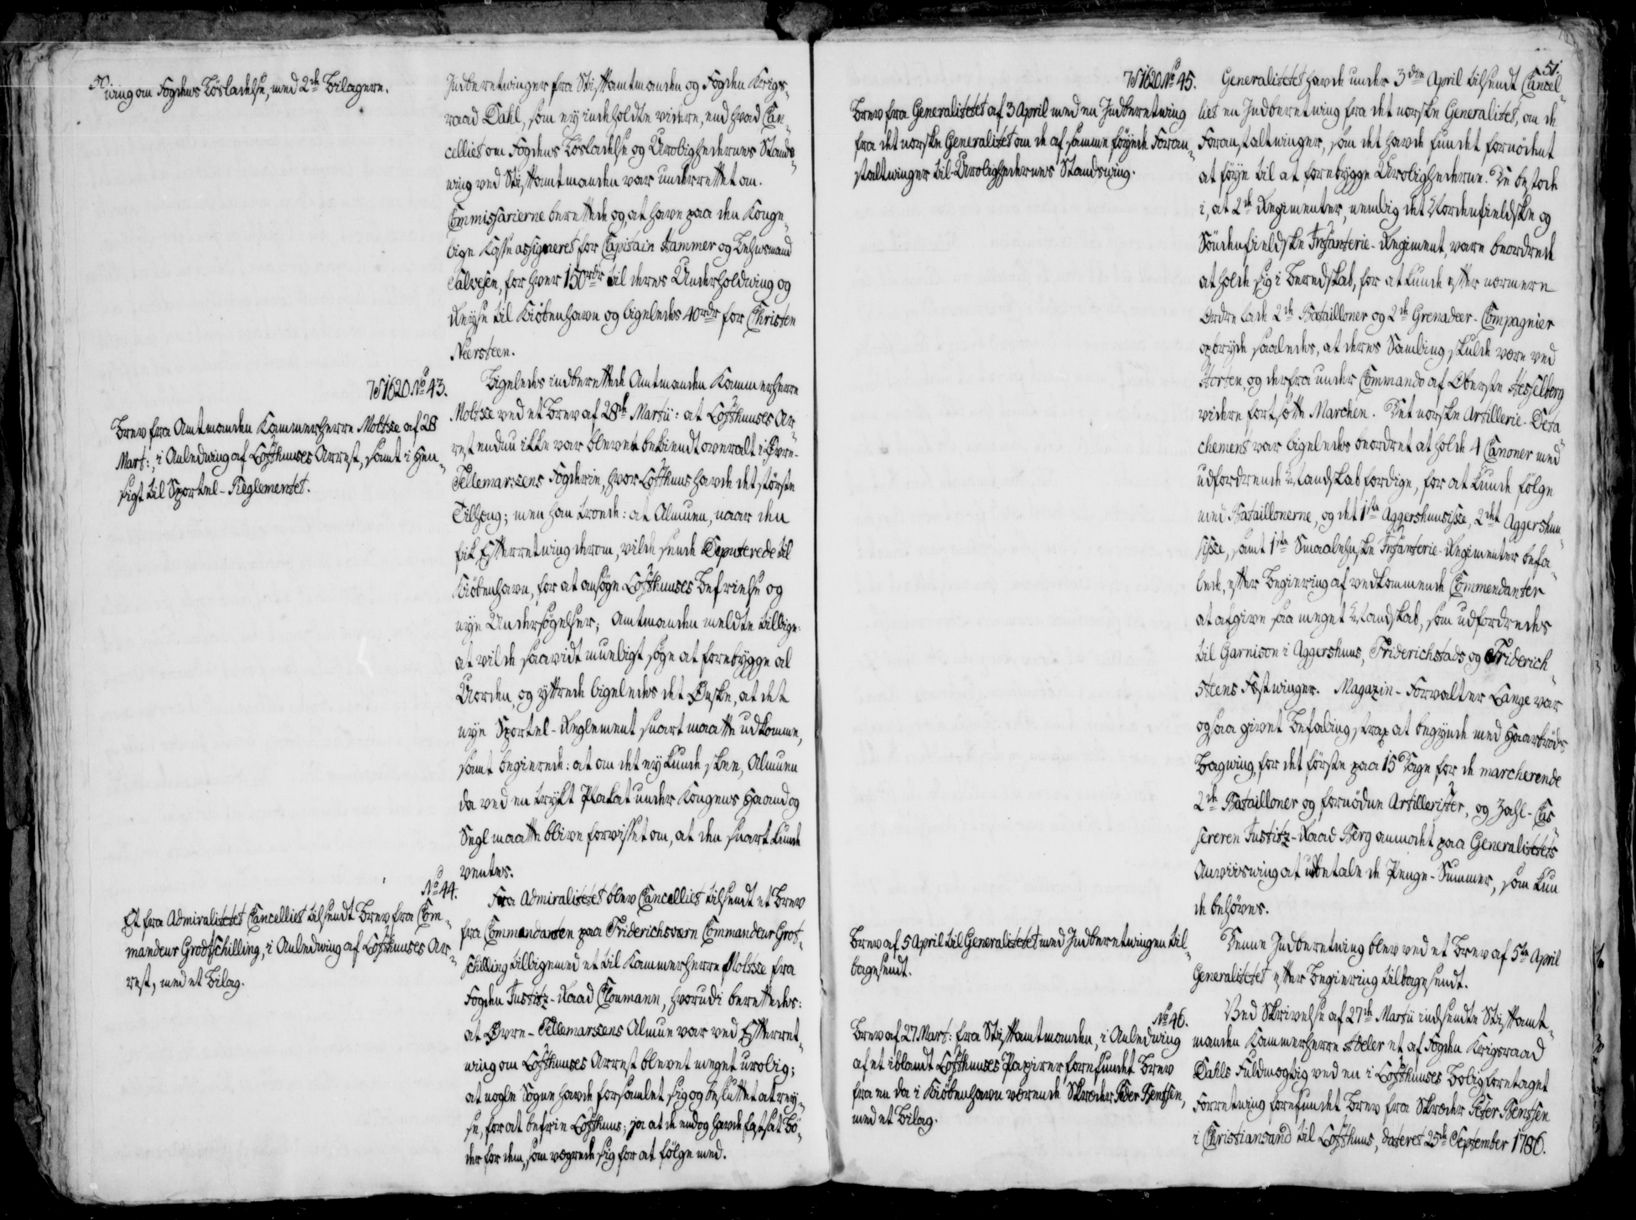 ning om Fogdens Løsladelse, med 2de Bilagere.
Indberetninger fra Stiftamtmanden og Fogden Krigs-
raad Dahl, som ey indeholdte videre, end hvad Can-
celliet om Fogdens Løsladelse og Urolighedernes Stands-
ning ved Stiftamtmanden var underrettet om.
Commissarierne berettede og, at have paa den Konge-
lige Kasse assigneret for Capitain Hammer og Lehnsmand
Salvesen, for hver 150 rdr til deres Underholdning og
Reyse til Kiøbenhavn og ligeledes 40 rdr for Christen
Neersteen.
W 1620. No 43.
Brev fra Amtmanden Kammerherre Moltke af 28
Mart:, i Anledning af Lofthuuses Arrest, samt i Hen-
sigt til Sportel-Reglementet.
Ligeledes indberettede Amtmanden Kammerherre
Moltke ved et Brev af 28de Martii: at Lofthuuses Ar-
rest endnu ikke var blevet bekiendt overalt i Øvre-
Tellemarkens Fogderie, hvor Lofthuus havde det største
Tilhæng; men han troede: at Almuen, naar den
fik Efterretning derom, vilde sende Deputerede til
Kiøbenhavn, for at ansøge Lofthuuses Befrielse og
nye Undersøgelser; Amtmanden meldte tillige:
at vilde saavidt mueligt søge at forebygge al
Uorden, og yttrede ligeledes det Ønske, at det
nye Sportel-Reglement snart maatte udkomme,
samt begierede: at om det ey kunde skee, Almuen
da ved en trykt Plakat under Kongens Haand og
Segl maatte blive forvisset om, at den snart kunde
ventes.
No 44.
Et fra Admiralitetet Cancelliet tilsendt Brev fra Com-
mandeur Grodtschilling, i Anledning af Lofthuuses Ar-
rest, med et Bilag.
Fra Admiralitetet blev Cancelliet tilsendt et Brev
fra Commandanten paa Friderichsværn Commandeur Grot-
schilling tilligemed et til Kammerherre Moltke fra
Fogden Justitz-Raad Cloumann, hvorudi berettedes:
at Øvre-Tellemarkens Almue var ved Efterret-
ning om Lofthuuses Arrest blevet meget urolig;
at nogle Sogne havde forsamlet sig og besluttet at rey-
se, for at befrie Lofthuus; ja at de endog havde fastsat Bø-
der for dem, som vægrede sig for at følge med.
51.
W 1620 No 45.
Brev fra Generalitetet af 3 April med en Indberetning
fra det norske Generalitet om de af samme føyede Foran-
staltninger til Urolighedernes Standsning.
Generalitetet havde under 3die April tilsendt Cancel-
liet en Indberetning fra det norske Generalitet, om de
Foranstaltninger, som det havde fundet fornødent
at føye til at forebygge Urolighederne. De bestode
i, at 2de Regimenter, nemlig det Nordenfieldske og
Søndenfieldske Infanterie-Regiment, vare beordrede
at holde sig i Beredskab, for at kunde efter nærmere
Ordre lade 2de Batailloner og 2de Grenadeer-Compagnier
opbryde saaledes, at deres Samling skulde være ved
Horten, og derfra under Commando af Oberste Hesselberg
videre fortsætte Marchen. Det norske Artillerie-Deta-
chement var ligeledes beordret at holde 4 Canoner med
udfordrende Mandskab færdige, for at kunde følge
med Bataillonerne, og det 1ste Aggershuusiske, 2det Aggershuu-
siske, samt 1ste Smaalehnske Infanterie-Regimenter befa-
lede, efter Begiering af vedkommende Commendanter
at afgive saa meget Mandskab, som udfordredes
til Garnison i Aggershuus, Friderichstads, og Friderich-
steens Fæstninger. Magazin-Forvalter Lange var
ogsaa givet Befaling, strax at begynde med Haardbrøds
Bagning, for det første paa 15 Dage for de marcherende
2de Batailloner og fornødne Artillerister, og Zahl-Cas-
sereren Justitz-Raad Berg anmodet paa Generalitetets
Anviisning at udbetale de Penge-Summer, som kun-
de behøves.
Brev af 5 April til Generalitetet med Indberetningen til-
bagesendt.
Denne Indberetning blev ved et Brev af 5te April
Generalitetet efter Begiering tilbagesendt.
No 46.
Brev af 27 Mart: fra Stiftamtmanden, i Anledning
af et iblandt Lofthuuses Papirer forefundet Brev
fra en da i Kiøbenhavn værende Skræder Peder Bentsen,
med et Bilag.
Ved Skrivelse af 27de Martii indsendte Stiftamt-
manden Kammerherre Adeler et af Fogden Krigsraad
Dahls Fuldmægtig ved en i Lofthuuses Bolig foretaget
Forretning forefundet Brev fra Skræder Peter Bentsen
i Christiansand til Lofthuus, dateret 25de September 1786.